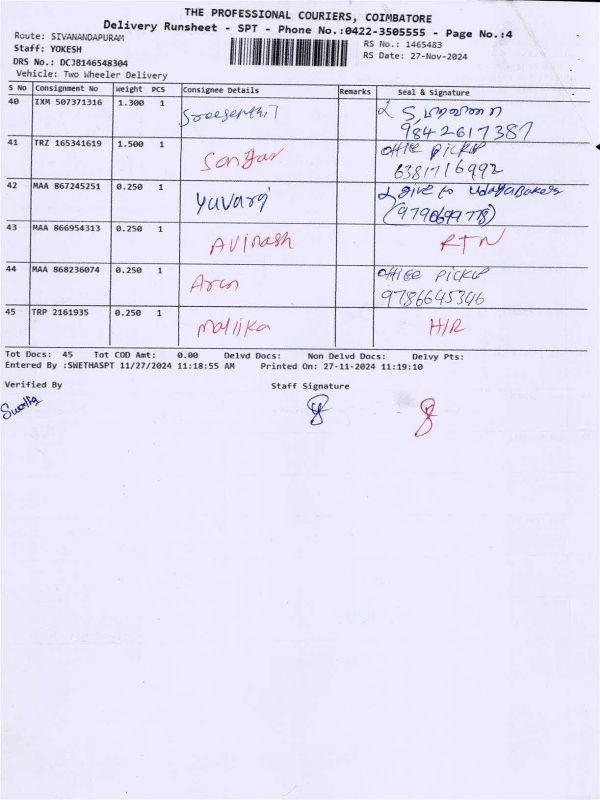 THE PROFESSIONAL COURIERS, COIMBATORE
Delivery Runsheet - SPT - Phone No.:0422-3505555 - Page No.:4
Route: SIVANANDAPURAM
RS No.: 1465483
Staff: YOKESH
RS Date: 27-Nov-2024
DRS No.: DCJB146548304
Vehicle: Two Wheeler Delivery
S No Consignment No Weight PCS Consignee Details Remarks Seal & Signature
40 IXM 507371316 1.300 1
9842617387
41 TRZ 165341619 1.500 1 office pickup
6381716992
42 MAA 867245251 0.250 1 Yuvaraj give to
43 MAA 866954313 0.250 1 Avinash RTN
44 MAA 868236074 0.250 1 Arun office pickup
9786645346
45 TRP 2161935 0.250 1 Mallika H/R
Tot Docs: 45 Tot COD Amt: 0.00 Delvd Docs: Non Delvd Docs: Delvy Pts:
Entered By :SWETHASPT 11/27/2024 11:18:55 AM Printed On: 27-11-2024 11:19:10
Verified By Staff Signature